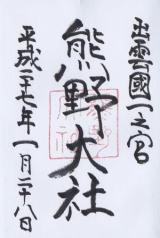 出雲國一之宮
熊野大社
平成二十七年一月二十八日